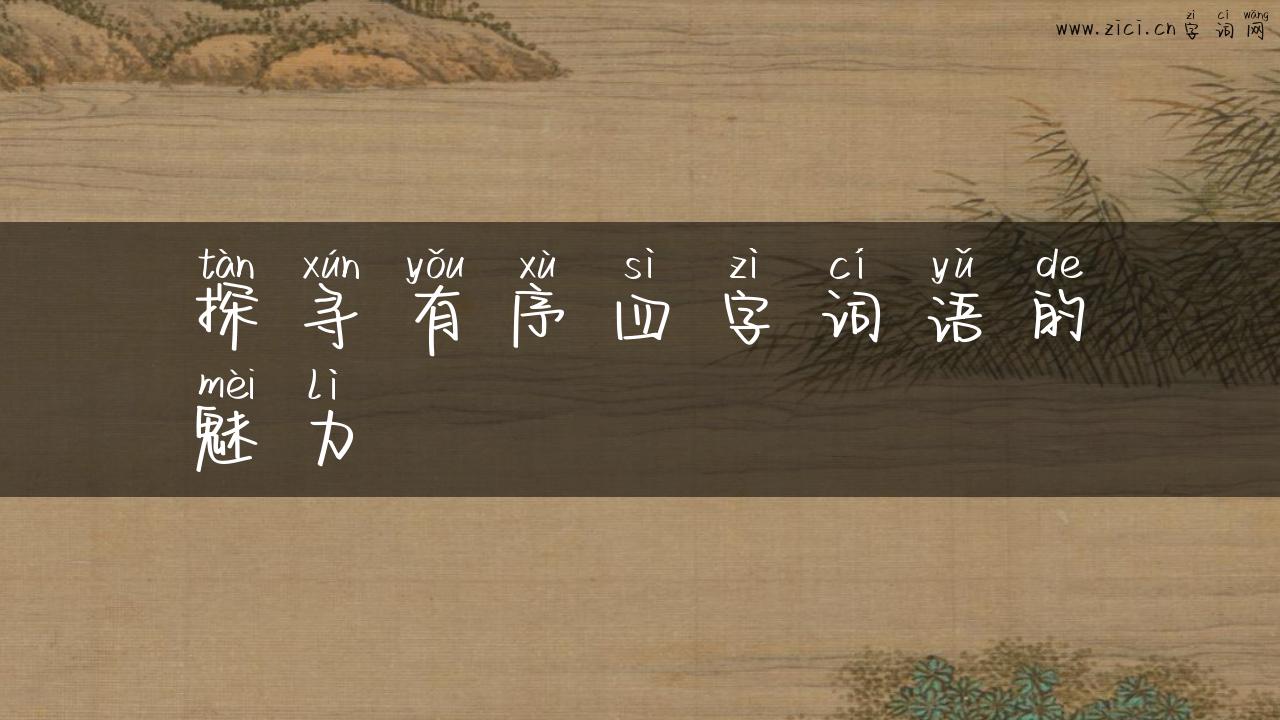 zì cí wǎng
www.zici.cn 字词网
tàn xún yǒu xù sì zì cí yǔ de
探寻有序四字词语的
mèi lì
魅力